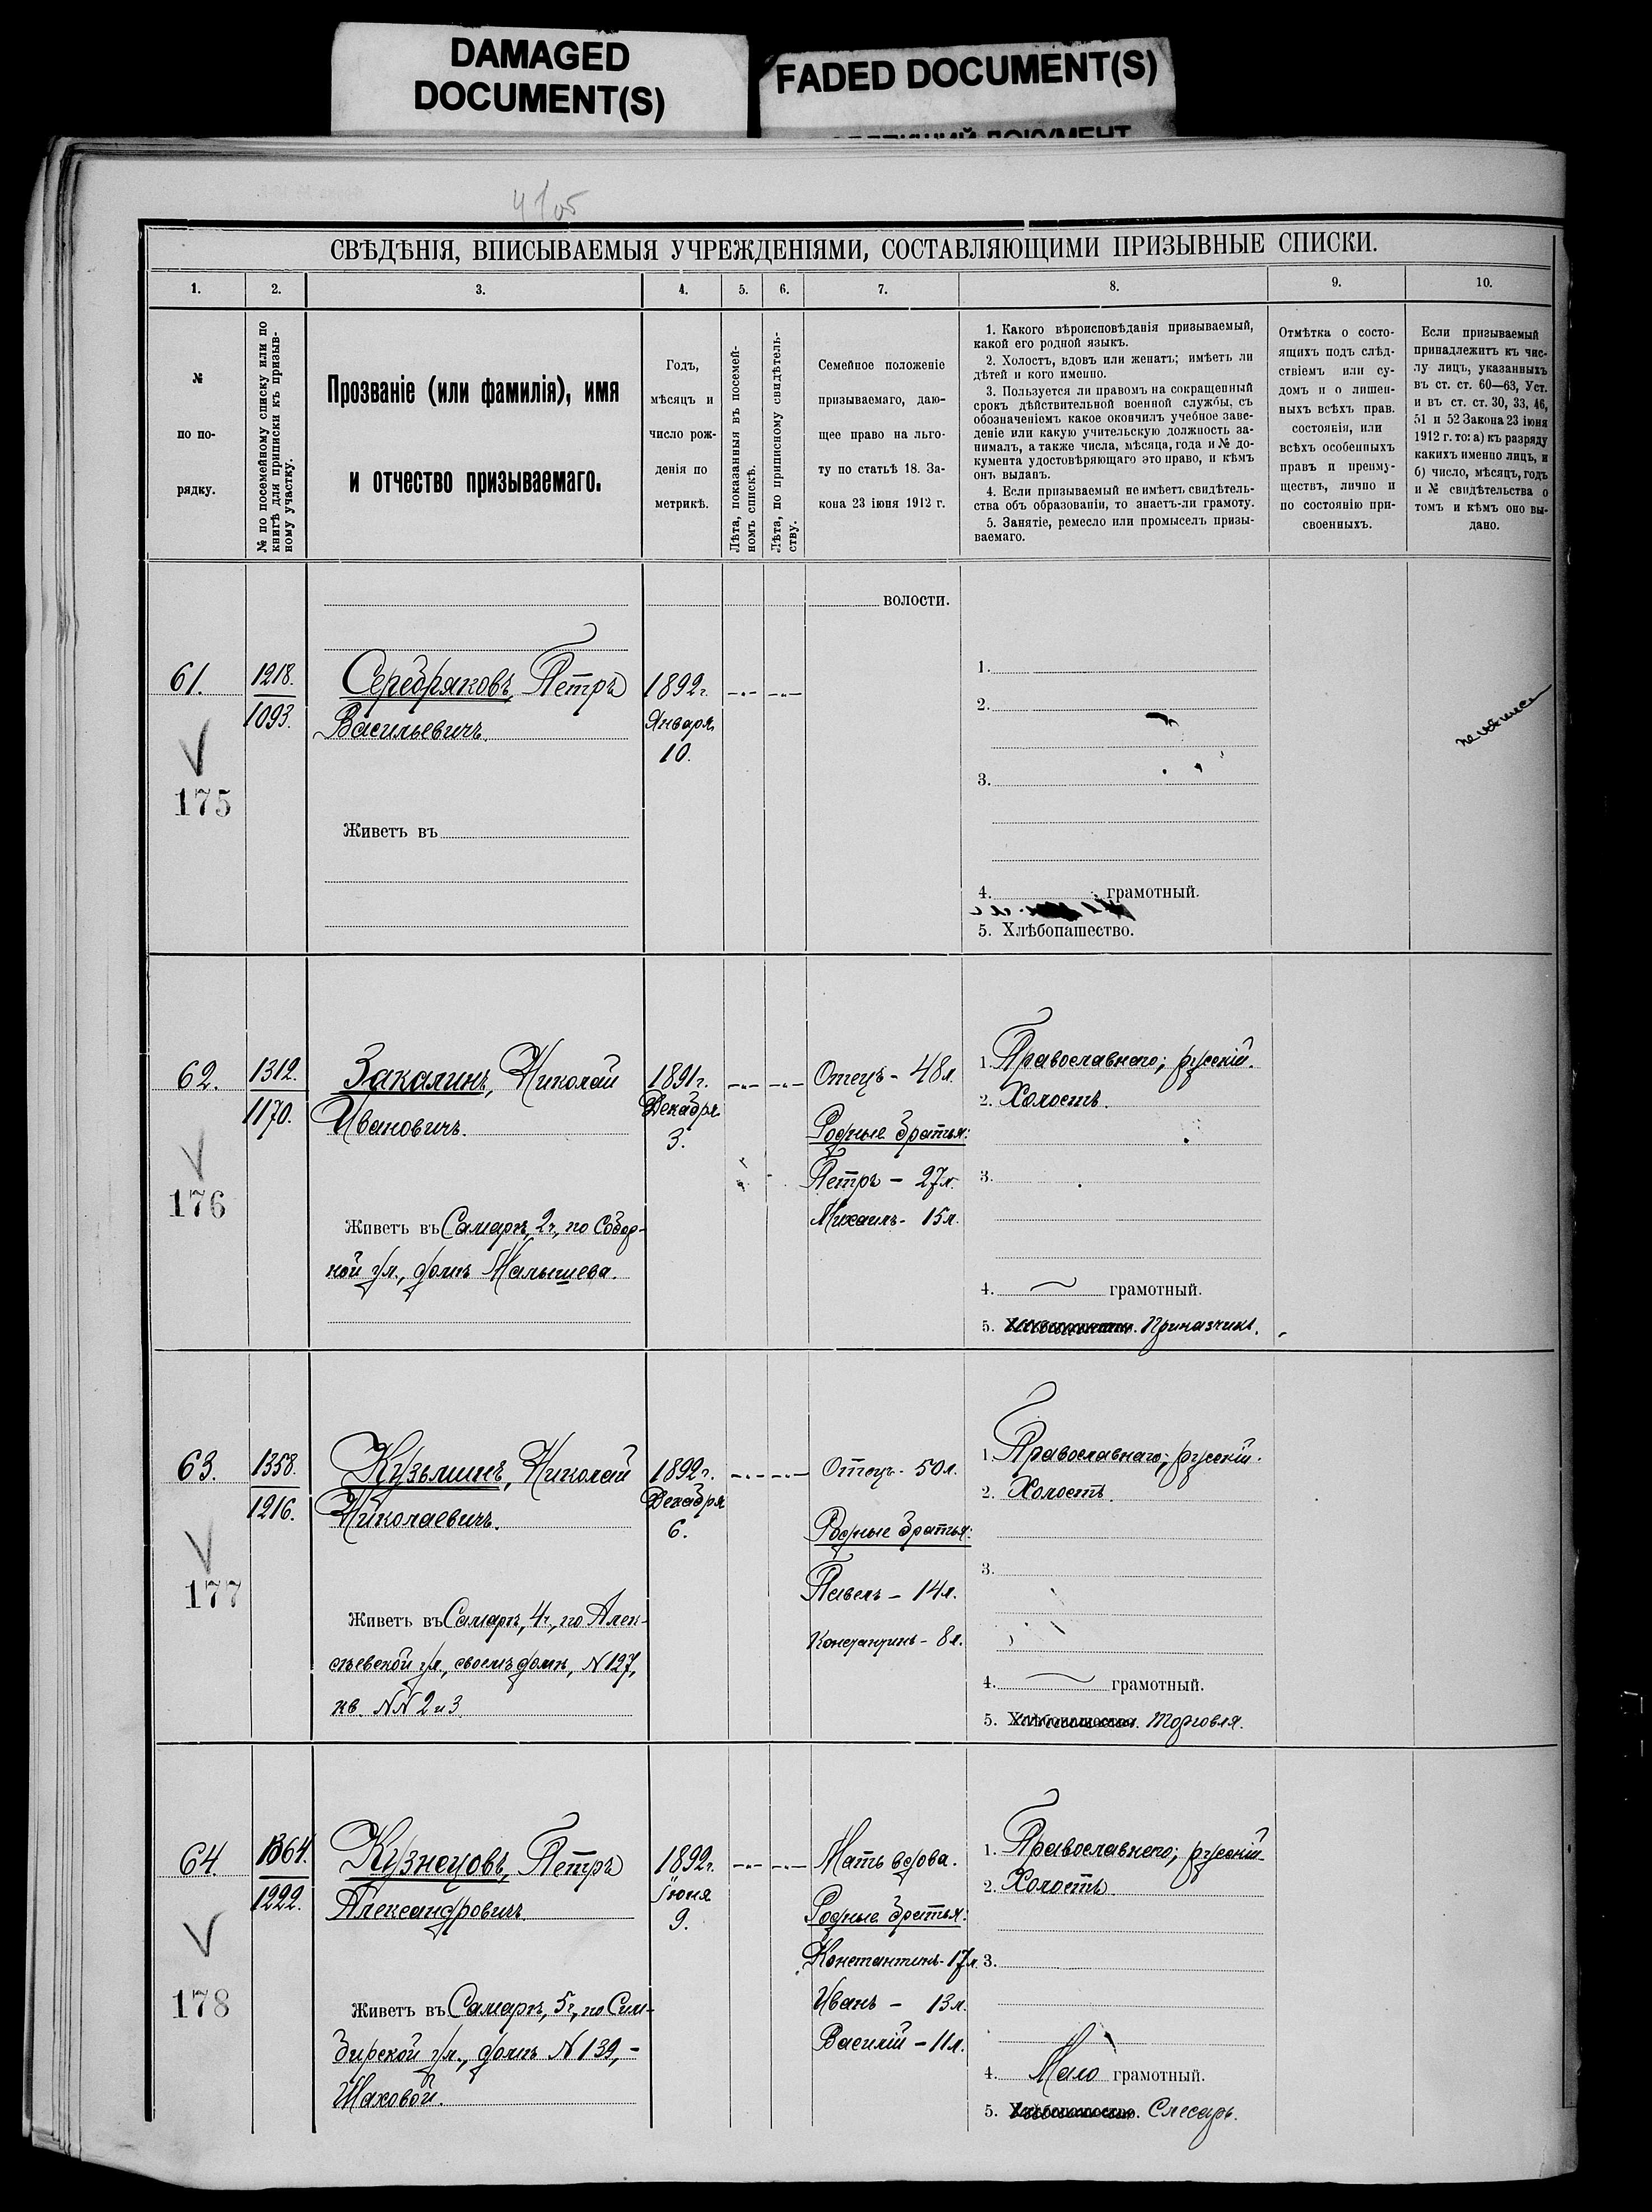 DAMAGED
DOCUMENT(S)
FADED DOCUMENT(S)
СВѢДѢНІЯ, ВПИСЫВАЕМЫЯ УЧРЕЖДЕНІЯМИ, СОСТАВЛЯЮЩИМИ ПРИЗЫВНЫЕ СПИСКИ.
1. 2. 3. 4. 5. 6. 7. 8. 9. 10.
№
по по-
рядку.
№ по посемейному списку или по
книгѣ для приписки къ призыв-
ному участку.
Прозваніе (или фамилія), имя
и отчество призываемаго.
Годъ,
мѣсяцъ и
число рож-
денія по
метрикѣ.
Лѣта, показанныя въ посемей-
номъ спискѣ.
Лѣта, по приписному свидѣтель-
ству.
Семейное положеніе
призываемаго, даю-
щее право на льго-
ту по статьѣ 18. За-
кона 23 іюня 1912 г.
1. Какого вѣроисповѣданія призываемый,
какой его родной языкъ.
2. Холостъ, вдовъ или женатъ; имѣетъ ли
дѣтей и кого именно.
3. Пользуется ли правомъ на сокращенный
срокъ дѣйствительной военной службы, съ
обозначеніемъ какое окончилъ учебное заве-
деніе или какую учительскую должность за-
нималъ, а также числа, мѣсяца, года и № до-
кумента удостовѣряющаго это право, и кѣмъ
онъ выданъ.
4. Если призываемый не имѣетъ свидѣтель-
ства объ образованіи, то знаетъ-ли грамоту.
5. Занятіе, ремесло или промыселъ призы-
ваемаго.
Отмѣтка о состо-
ящихъ подъ слѣд-
ствіемъ или су-
домъ и о лишен-
ныхъ всѣхъ прав.
состоянія, или
всѣхъ особенныхъ
правъ и преиму-
ществъ, лично и
по состоянію при-
своенныхъ.
Если призываемый
принадлежитъ къ чис-
лу лицъ, указанныхъ
въ ст. ст. 60—63, Уст.
и въ ст. ст. 30, 33, 46,
51 и 52 Закона 23 іюня
1912 г. то: а) къ разряду
какихъ именно лицъ, и
б) число, мѣсяцъ, годъ
и № свидѣтельства о
томъ и кѣмъ оно вы-
дано.
волости.
61.
1218.
1093.
175
Серебряковъ, Петръ
Васильевичъ.
Живетъ въ
1892г.
Января
10.
1.
2.
3.
4. грамотный.
5. Хлѣбопашество.
62.
1312.
1170.
176
Закалинъ, Николай
Ивановичъ.
Живетъ въ Самарѣ, 2ч., по Собор-
ной ул., домъ Малышева.
1891г.
Декабря
3.
Отецъ - 48л.
Родные братья:
Петръ - 27л.
Михаилъ - 15л.
1. Православнаго; русскій.
2. Холостъ.
3.
4. грамотный.
5. Хлѣбопашество. Приказчикъ.
63.
1358.
1216.
177
Кузьминъ, Николай
Николаевичъ.
Живетъ въ Самарѣ, 4ч., по Алек-
сѣевской ул., своемъ домѣ, N 127,
кв. NN 2 и 3.
1892г.
Декабря
6.
Отецъ - 50л.
Родные братья:
Павелъ - 14л.
Константинъ - 8л.
1. Православнаго; русскій.
2. Холостъ.
3.
4. грамотный.
5. Хлѣбопашество. Торговля.
64.
1364.
1222.
178
Кузнецовъ, Петръ
Александровичъ.
Живетъ въ Самарѣ, 5ч., по Сим-
бирской ул., домъ N 139, -
Шаховой.
1892г.
Іюня
9.
Мать вдова.
Родные братья:
Константинъ - 17л.
Иванъ - 13л.
Василій - 11л.
1. Православнаго; русскій.
2. Холостъ.
3.
4. Мало грамотный.
5. Хлѣбопашество. Слесарь.